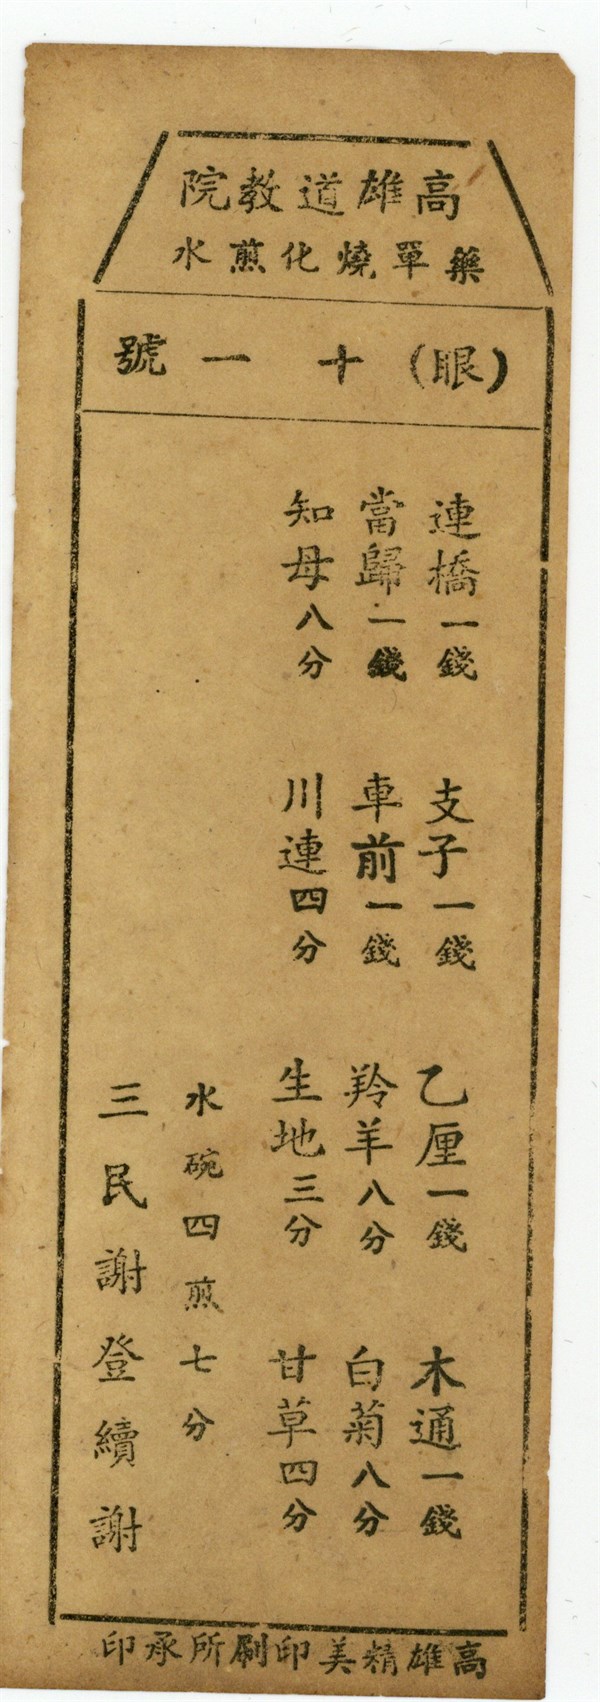 高雄道教院
藥單燒化煎水
(眼)十一號
連橋一錢 支子一錢 乙厘一錢 木通一錢
當歸一錢 車前一錢 羚羊八分 白菊八分
知母八分 川連四分 生地三分 甘草四分
水碗四煎七分
三民謝登續謝
高雄精美印刷所承印